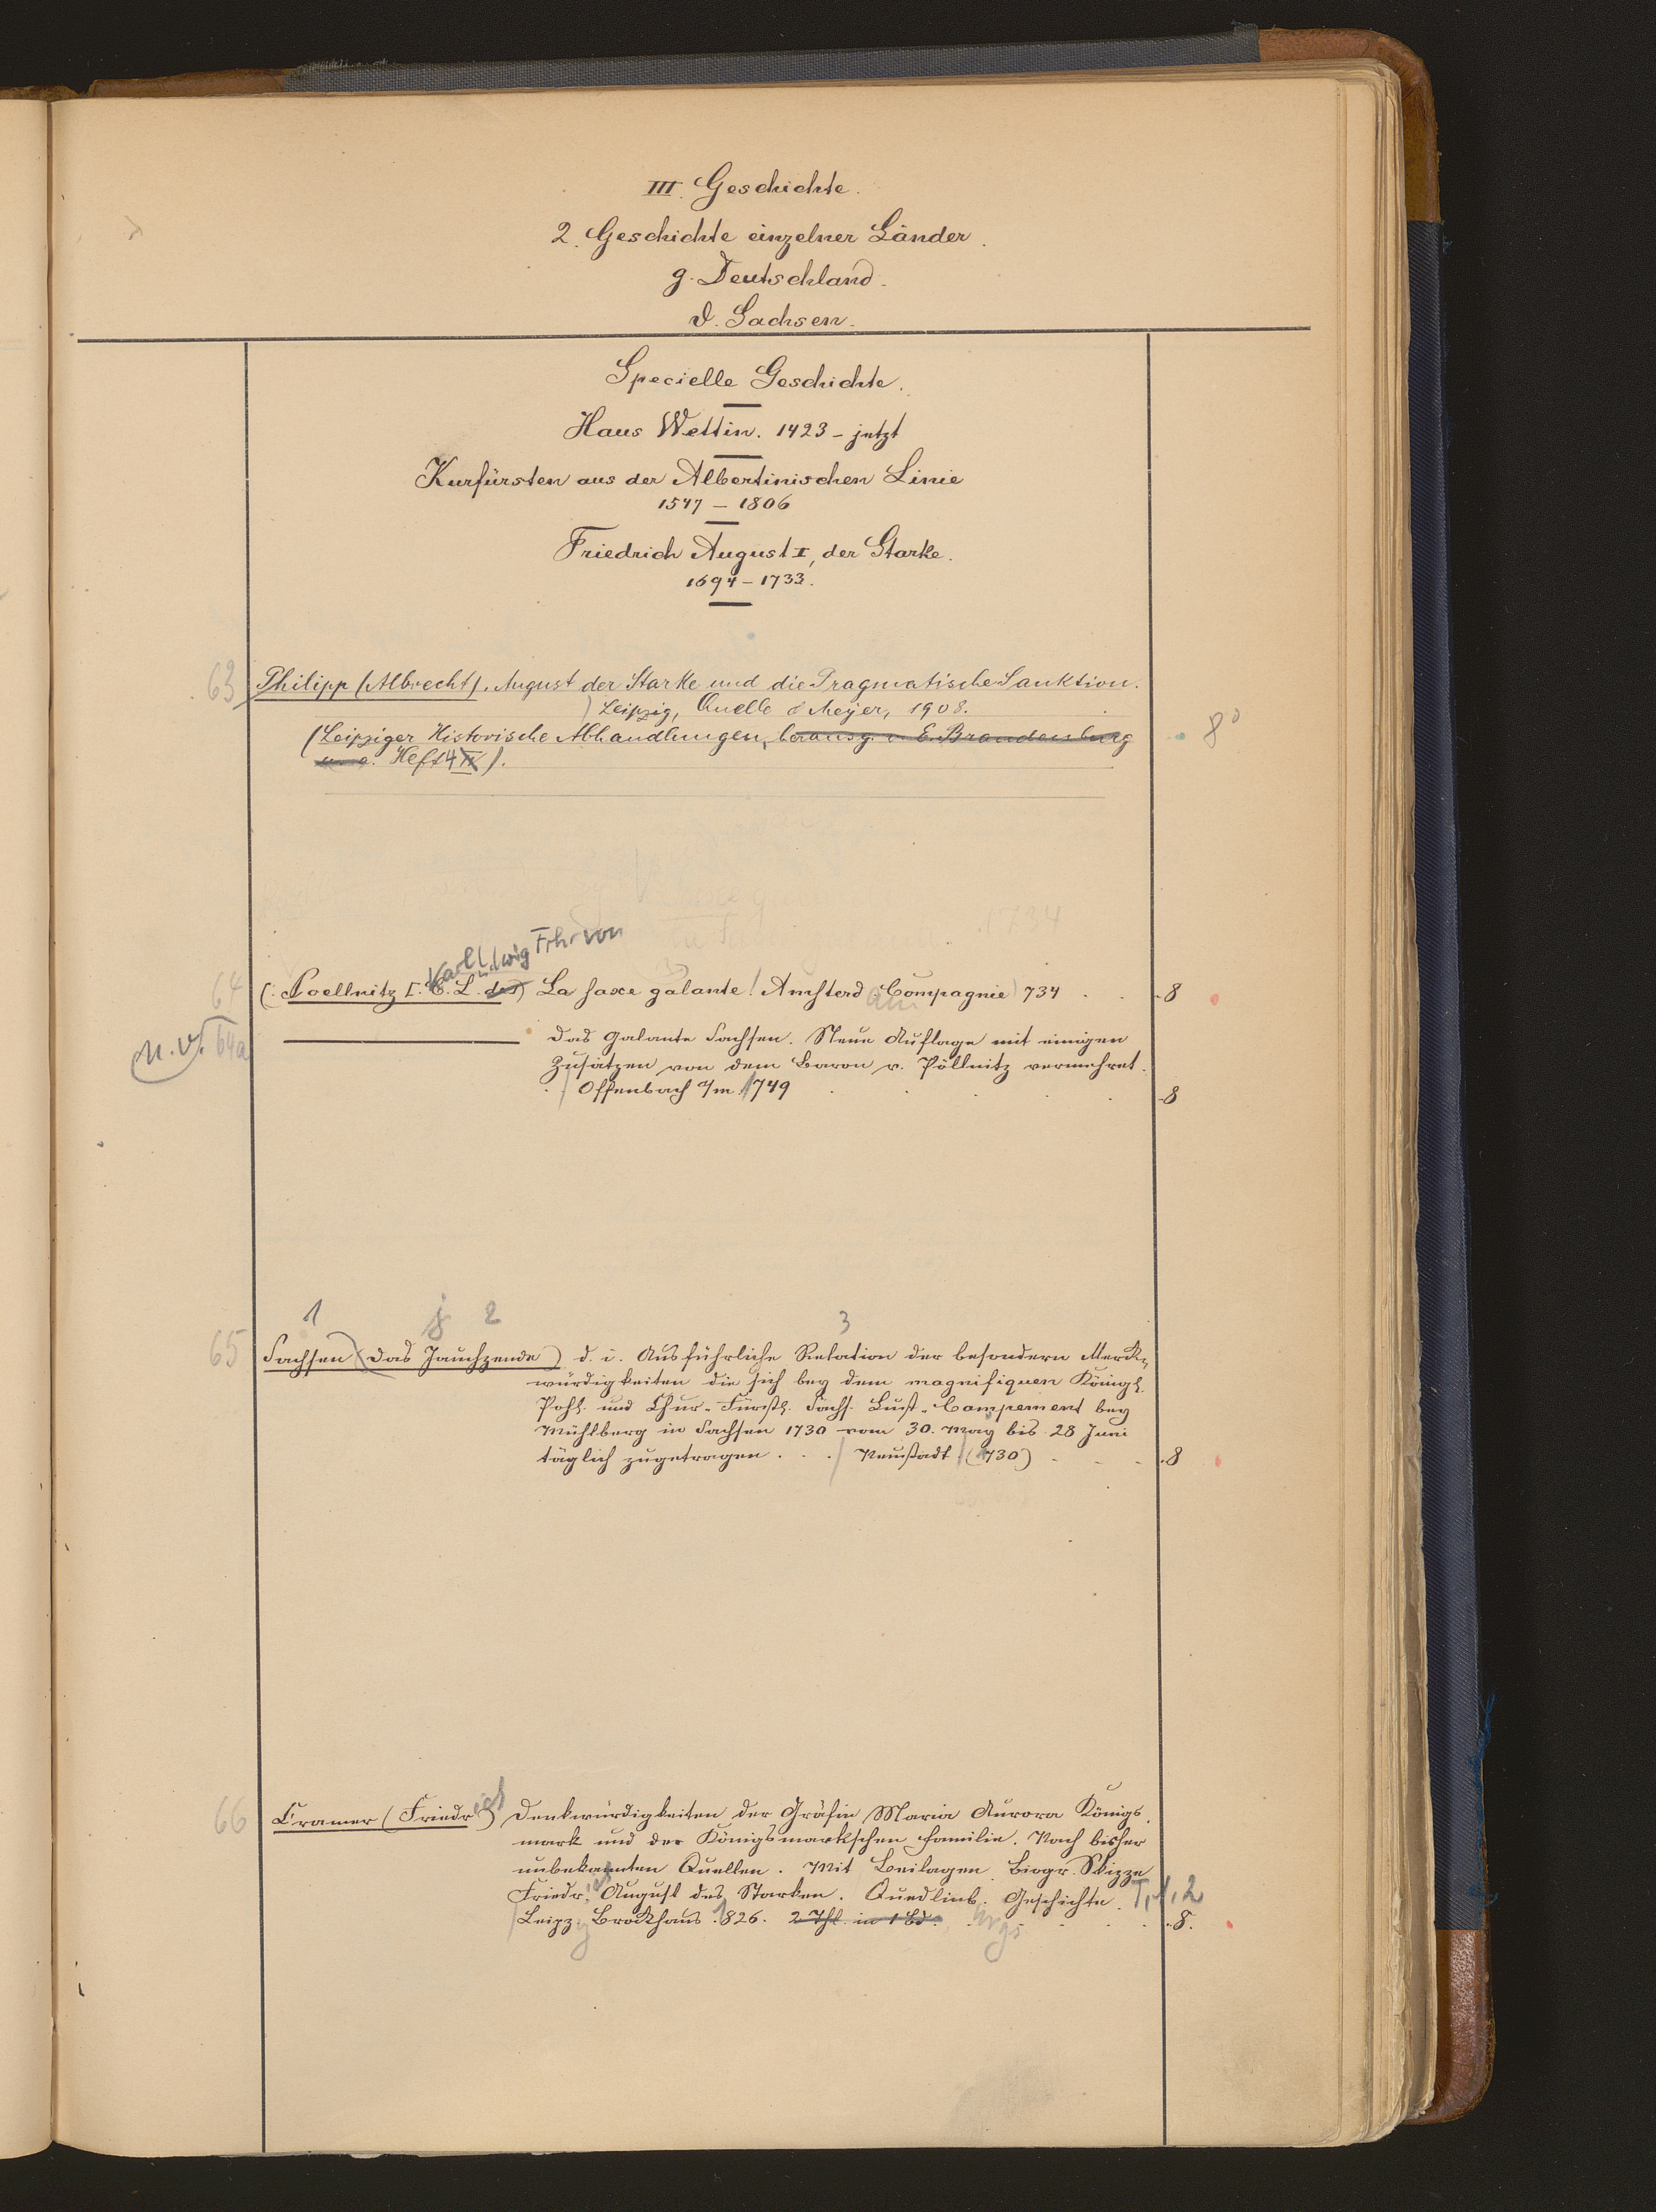 III. Geschichte.
2. Geschichte einzelner Länder.
g. Deutschland.
d. Sachsen.
Specielle Geschichte.
Haus Wettin. 1423 – jetzt
Kurfürsten aus der Albertinischen Linie
1547 – 1806
Friedrich August I, der Starke.
1694 – 1733.
63 Philipp (Albrecht), August der Starke und die Pragmatische Sanktion.
Leipzig, Quelle & Meyer, 1908.
(Leipziger Historische Abhandlungen, herausg. v. E. Brandenburg 8°
u. a. Heft 4).
Karl Ludwig Frhr von
64 (Poellnitz C. L. de) La saxe galante! Amsterd am Compagnie 734 8
n. v. 64a Das galante Sachsen. Neue Auflage mit einigen
Zusätzen von dem Baron v. Pöllnitz vermehret.
Offenbach a/m 1749 8
1 j 2 3
65 Sachsen (Das Jauchzende) d. i. Ausführliche Relation der besondern Merk-
würdigkeiten die sich bey dem magnifiquen Königl.
Pohl. und Chur-Fürstl. Sächs. Lust-Campement bey
Mühlberg in Sachsen 1730 vom 30. May bis 28 Juni
täglich zugetragen . . . Neustadt (1730) 8
66 Cramer (Friedrich) Denkwürdigkeiten der Gräfin Maria Aurora Königs
mark und der Königsmarkschen Familie. Nach bisher
unbekannten Quellen. Mit Beilagen Biogr. Skizze
Friedrich August des Starken. Quedlinb. Geschichte. T. 1, 2
Leipzig Brockhaus 1826. 2 Thl. in 1 Bd. 8.